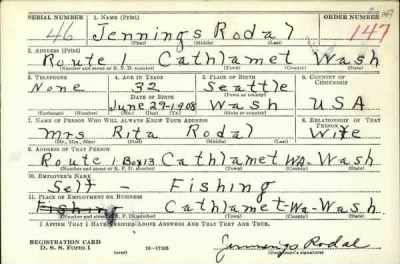 SERIAL NUMBER 1. NAME (Print) ORDER NUMBER
46 Jennings Rodal 147
(First) (Middle) (Last)
2. ADDRESS (Print)
Route 1 Cathlamet Wash
(Number and street or R. F. D. number) (Town) (County) (State)
3. TELEPHONE 4. AGE IN YEARS 5. PLACE OF BIRTH 6. COUNTRY OF CITIZENSHIP
None 32 Seattle
DATE OF BIRTH (Town or county)
June 29-1908 Wash USA
(Mo.) (Day) (Yr.) (State or country)
7. NAME OF PERSON WHO WILL ALWAYS KNOW YOUR ADDRESS 8. RELATIONSHIP OF THAT PERSON
Mrs Rita Rodal Wife
(Mr., Mrs., Miss) (First) (Middle) (Last)
9. ADDRESS OF THAT PERSON
Route 1 Box 13 Cathlamet WA- Wash
(Number and street or R. F. D. number) (Town) (County) (State)
10. EMPLOYER'S NAME
Self - Fishing
11. PLACE OF EMPLOYMENT OR BUSINESS
Fishing Cathlamet-Wa-Wash
(Number and street or R. F. D. number) (Town) (County) (State)
I AFFIRM THAT I HAVE VERIFIED ABOVE ANSWERS AND THAT THEY ARE TRUE.
REGISTRATION CARD
D. S. S. Form 1 (over) 16-17105 Jennings Rodal
(Registrant's signature)